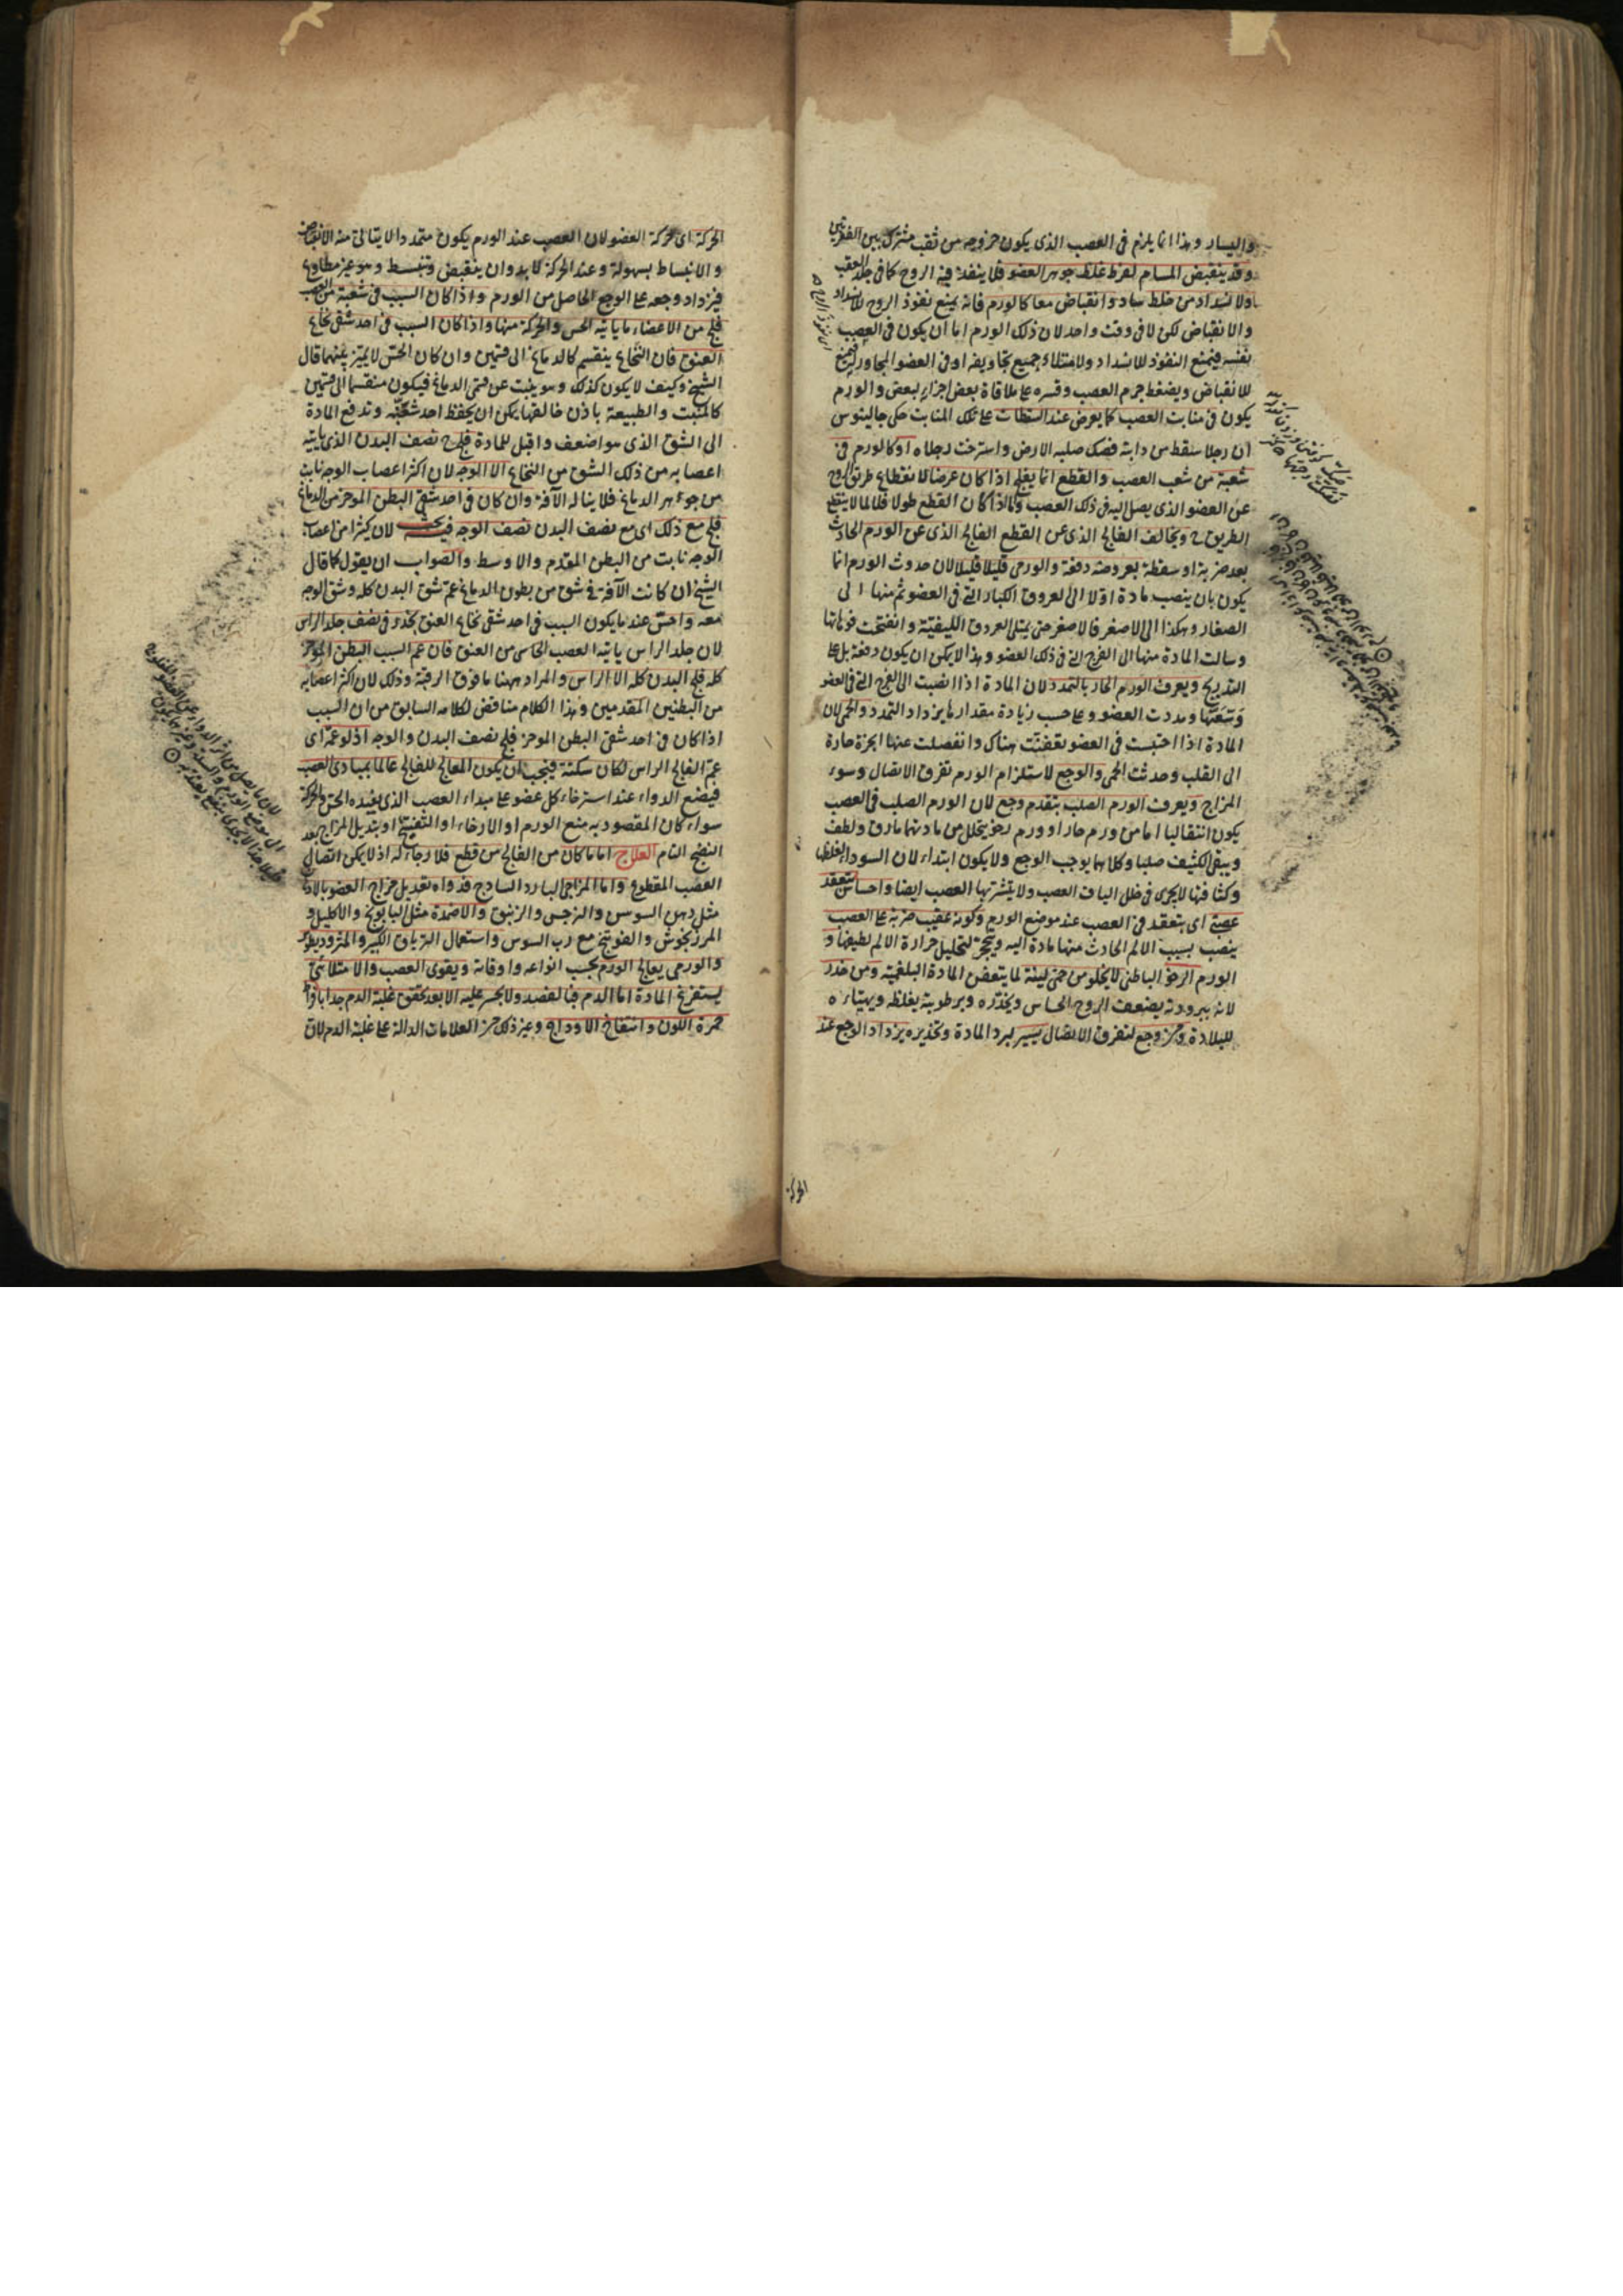 واليسار وهذا انما يلزم فى العصب الذى يكون خروجه من ثقب مشترك بين الفقرتين
وقد ينقبض المسام لفرط غلظ جوهر العضو فلا ينفذ فيه الروح كما فى جلد العقب
ولانسداد من خلط ساد وانقباض معا كالورم فانه يمنع نفوذ الروح للانسداد
والانقباض لكن لا فى وقت واحد لان ذلك الورم اما ان يكون فى العصب
نفسه فيمنع النفوذ للانسداد ولامتلاء جميع تجاويفه او فى العضو المجاور فيمنع
للانقباض ويضغط جرم العصب وقسره على ملاقاة بعض اجزايه لبعض والورم
يكون فى منابت العصب كما يعرض عند السقطات على تلك المنابت حكى جالينوس
ان رجلا سقط من دابة فصك صلبه الارض واسترخت رجلاه او كالورم فى
شعبة من شعب العصب والقطع انما يفلج اذا كان عرضا لانقطاع طريق الروح
عن العضو الذى يصل اليه فى ذلك العصب واما اذا كان القطع طولا فلا لما لا ينقطع
الطريق ح ويخالف الفالج الذى عن القطع الفالج الذى عن الورم الحادث
بعد ضربة او سقطة بعروضه دفعة والورمى قليلا قليلا لان حدوث الورم انما
يكون بان ينصب مادة اولا الى العروق الكبار التى فى العضو ثم منها الى
الصغار وهكذا الى الاصغر فالاصغر حتى يمتلى العروق الليفية وانفتحت فوهاتها
وسالت المادة منها الى الفرج التى فى ذلك العضو وهذا لا يمكن ان يكون دفعة بل على
التدريج ويعرف الورم الحار بالتمدد لان المادة اذا انصبت الى الفرج التى فى العضو
وسعتها ومددت العضو وعلى حسب زيادة مقدارها يزداد التمدد والحمى لان
المادة اذا احتبست فى العضو تعفنت هناك وانفصلت عنها ابخرة حارة
الى القلب وحدثت الحمى والوجع لاستلزام الورم تفرق الاتصال وسوء
المزاج ويعرف الورم الصلب بتقدم وجع لان الورم الصلب فى العصب
يكون انتقاليا اما من ورم حار او ورم رخو يتحلل من مادتهما ما رق ولطف
ويبقى الكثيف صلبا وكلاهما يوجب الوجع ولا يكون ابتداء لان السوداء لغلظها
وكثافتها لا يجرى فى خلل الياف العصب ولا يتشربها العصب ايضا واحساس بتعقد
عصبى اى بتعقد فى العصب عند موضع الورم وكونه عقيب ضربة على العصب
ينصب بسبب الالم الحادث منها مادة اليه ويتحجر لتحليل حرارة الالم لطيفها و
الورم الرخو الباطنى لا يخلو من حمى لينة لما يتعفن المادة البلغمية ومن خدر
لانه ببرودته يضعف الروح الحساس ويخدره وبرطوبته يغلظه ويهيئه
للبلادة ومن وجع لتفرق الاتصال يسير لبرد المادة وتخديره يزداد الوجع عند
الحركة
الحركة اى حركة العضو لان العصب عند الورم يكون متمددا لا يتاتى منه الانقباض
والانبساط بسهولة وعند الحركة لا بد وان ينقبض وينبسط وهو غير مطاوع
فيزداد وجعه على الوجع الحاصل من الورم واذا كان السبب فى شعبة من العصب
فلج من الاعضاء ما ياتيه الحس والحركة منها واذا كان السبب فى احد شقى نخاع
العنق فان النخاع ينقسم كالدماغ الى قسمين وان كان الحس لا يميز بينهما قال
الشيخ وكيف لا يكون كذلك وهو ينبت عن قسمى الدماغ فيكون منقسما الى قسمين
كالمنبت والطبيعة باذن خالقها يمكن ان يحفظ احد شقيه وتدفع المادة
الى الشق الذى هو اضعف واقبل للمادة فلج ح نصف البدن الذى ياتيه
اعصابه من ذلك الشق من النخاع الا الوجه لان اكثر اعصاب الوجه نابت
من جوهر الدماغ فلا يناله الآفة وان كان فى احد شقى البطن الموخر من الدماغ
فلج مع ذلك اى مع نصف البدن نصف الوجه فيه بحث لان كثيرا من اعصاب
الوجه نابت من البطن المقدم والاوسط والصواب ان يقول كما قال
الشيخ ان كانت الآفة فى شق من بطون الدماغ عم شق البدن كله وشق الوجه
معه واحس عند ما يكون السبب فى احد شقى نخاع العنق بخدر فى نصف جلد الراس
لان جلد الراس ياتيه العصب الحاسى من العنق فان عم السبب البطن الموخر
كله فلج البدن كله الا الراس والمراد ههنا ما فوق الرقبة وذلك لان اكثر اعصابه
من البطنين المقدمين وهذا الكلام مناقض لكلامه السابق من ان السبب
اذا كان فى احد شقى البطن الموخر فلج نصف البدن والوجه اذ لو عمه اى
عم الفالج الراس لكان سكتة فيجب ان يكون المعالج للفالج عالما بمبادى العصب
فيضع الدواء عند استرخاء كل عضو على مبداء العصب الذى يفيده الحس والحركة
سواء كان المقصود به منع الورم او الارخاء او التفتيح او تبديل المزاج بعد
النضج التام العلاج اما ما كان من الفالج من قطع فلا رجاء له اذ لا يمكن اتصال
العصب المقطوع واما المزاجى البارد الساذج فدواه تعديل مزاج العضو بالادهان
مثل دهن السوسن والنرجس والزنبق والاضمدة مثل البابونج والاكليل و
المرزنجوش والفوتنج مع رب السوس واستعمال الترياق الكبير والمثروديطوس
والورمى يعالج الورم بحسب انواعه واوقاته ويقوى العصب والامتلائى
يستفرغ المادة اما الدم فبالفصد ولا يجسر عليه الا بعد تحقق غلبة الدم جدا
حمرة اللون وانتفاخ الاوداج وغير ذلك من العلامات الدالة على غلبة الدم لان